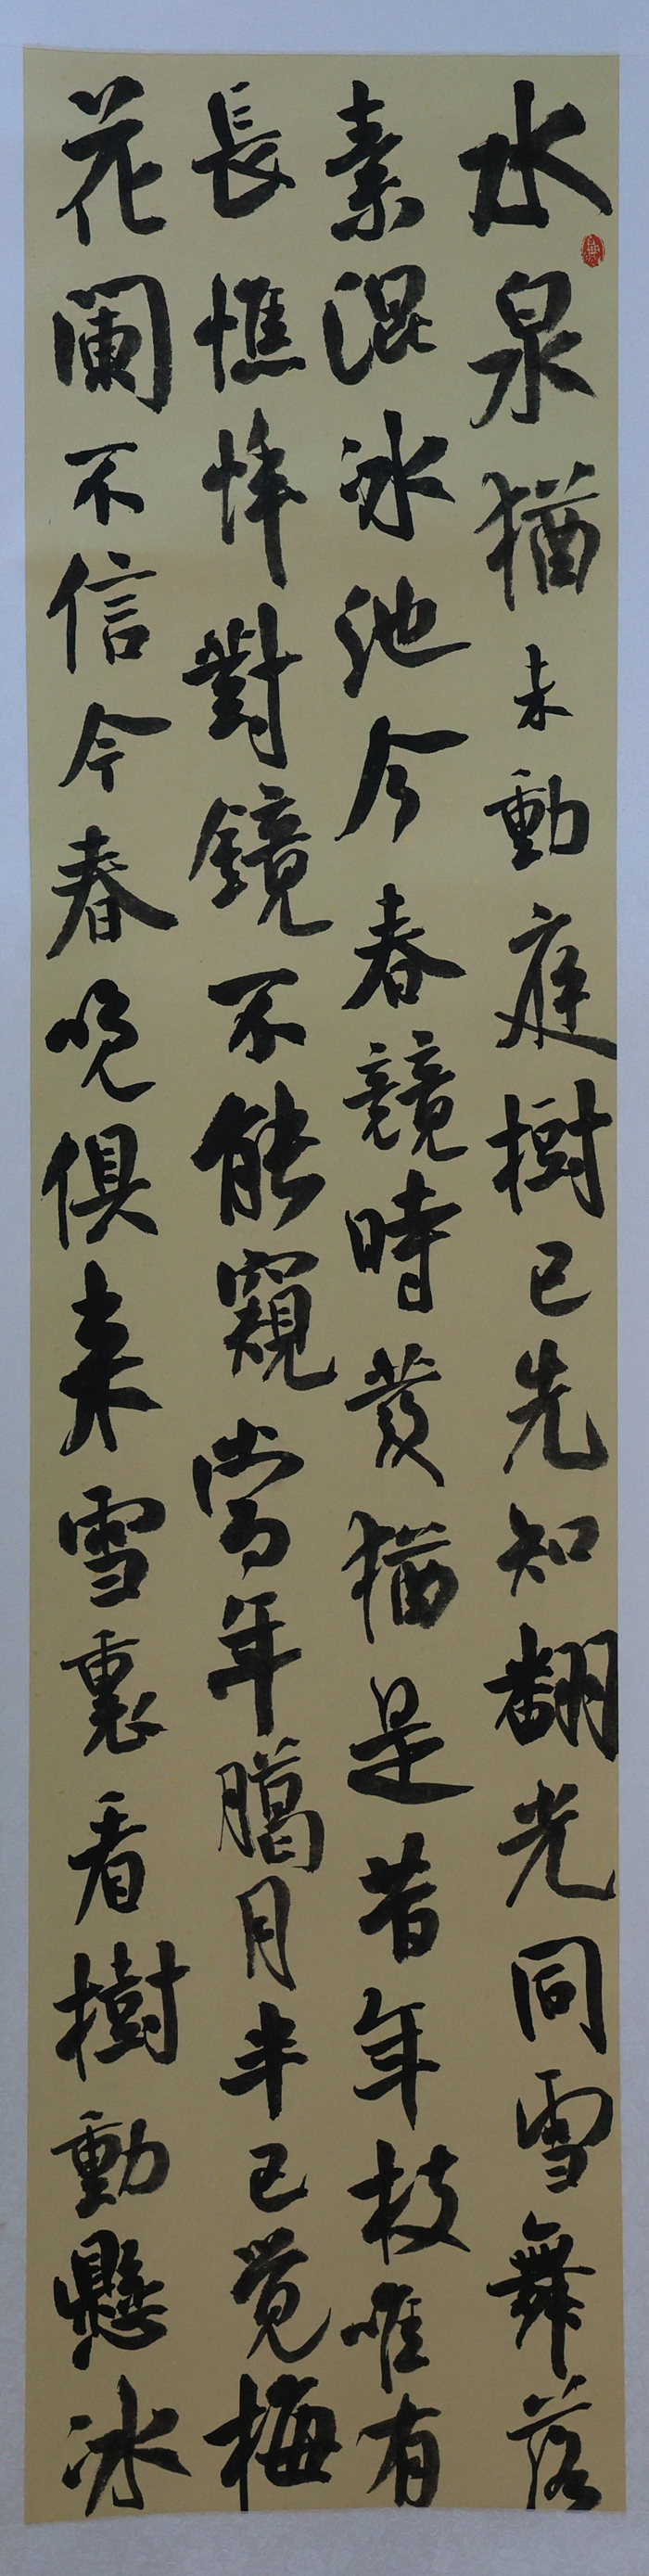 水泉猶未動庭樹已先知翻光同雪舞落
素混冰池今春競時發猶是昔年枝唯有
長憔悴對鏡不能窺當年臈月半已覺梅
花闌不信今春晚俱来雪裏看樹動懸冰